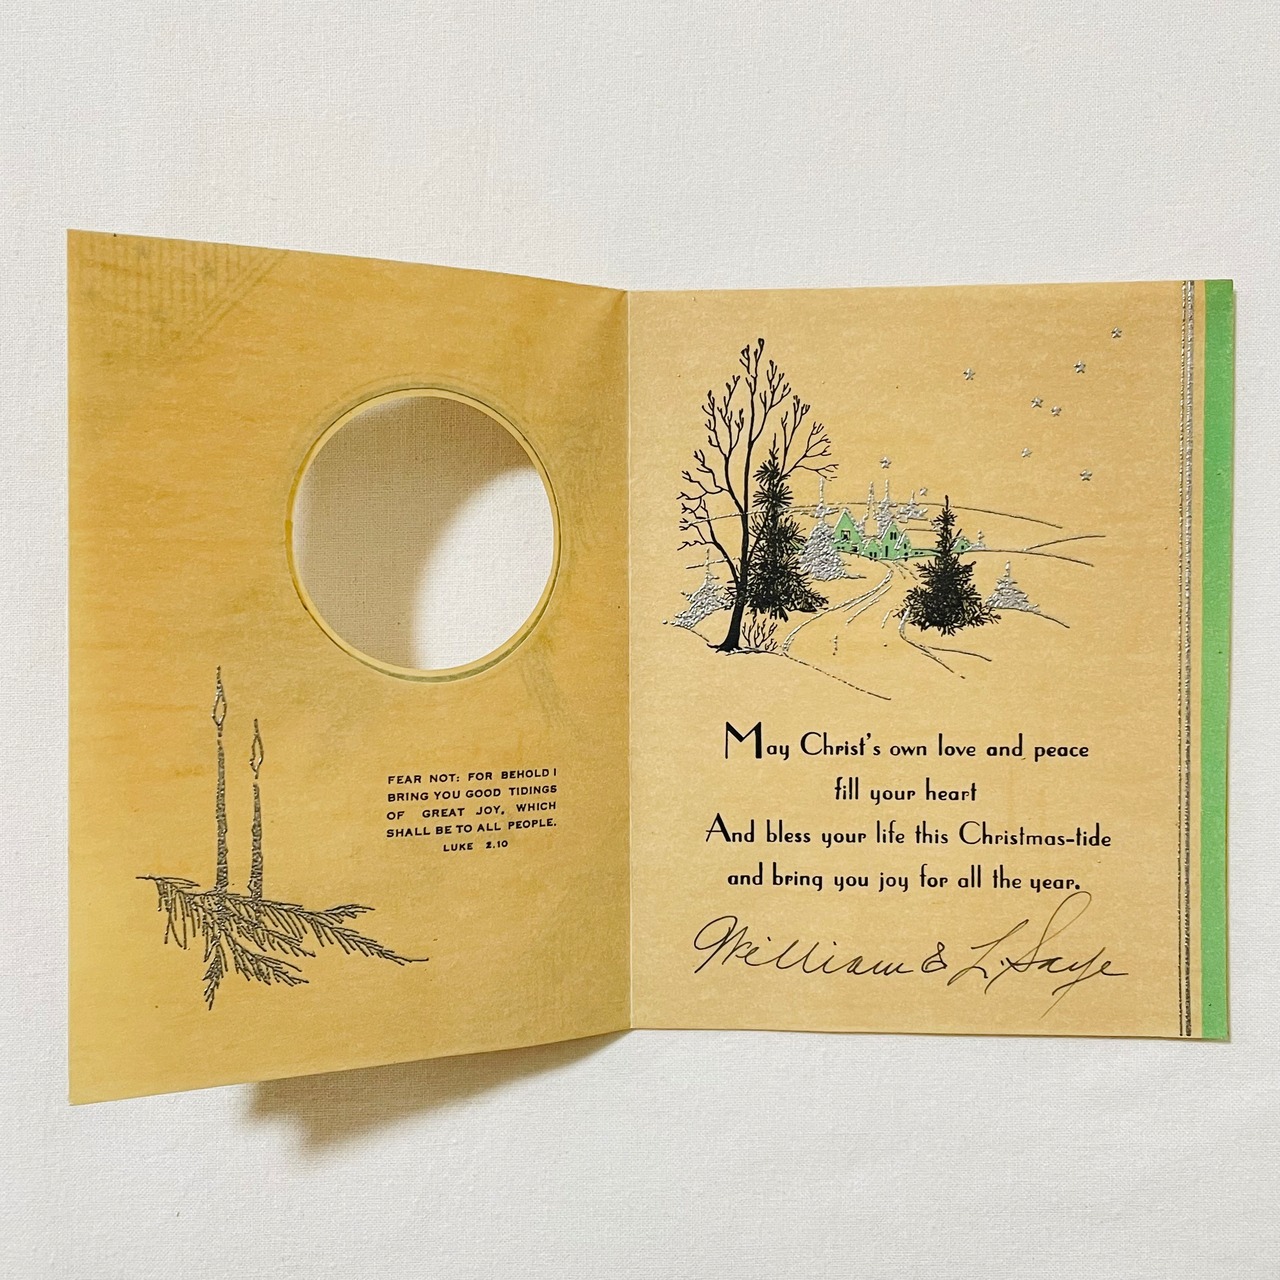 FEAR NOT: FOR BEHOLD I
BRING YOU GOOD TIDINGS
OF GREAT JOY, WHICH
SHALL BE TO ALL PEOPLE.
LUKE 2.10
May Christ's own love and peace
fill your heart
And bless your life this Christmas-tide
and bring you joy for all the year.
William & L. Saye